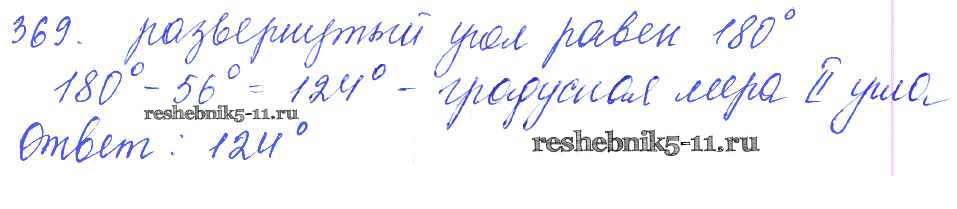 369. развернутый угол равен 180°
180° - 56° = 124° - градусная мера II угла
reshebnik5-11.ru
Ответ: 124°
reshebnik5-11.ru